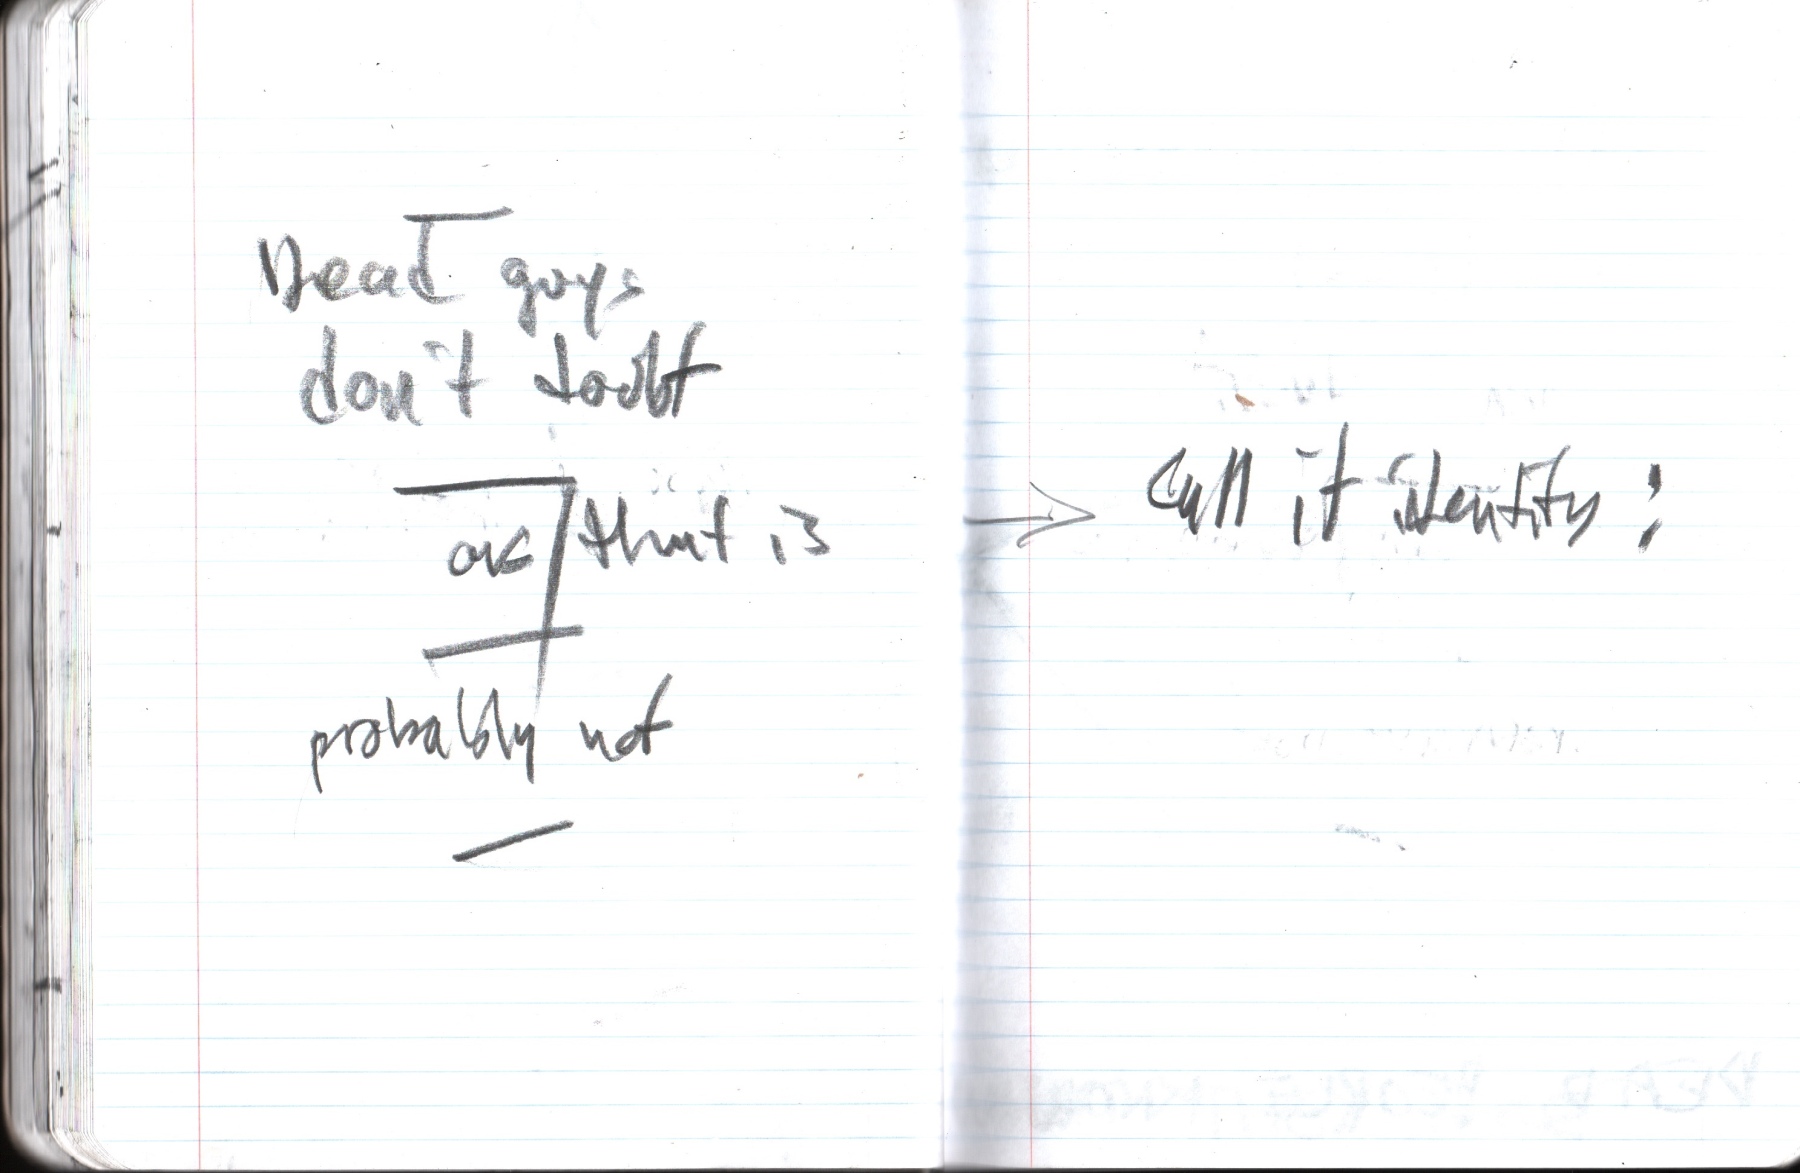 Dead guys
don't doubt
or / that is
probably not
call it identity: